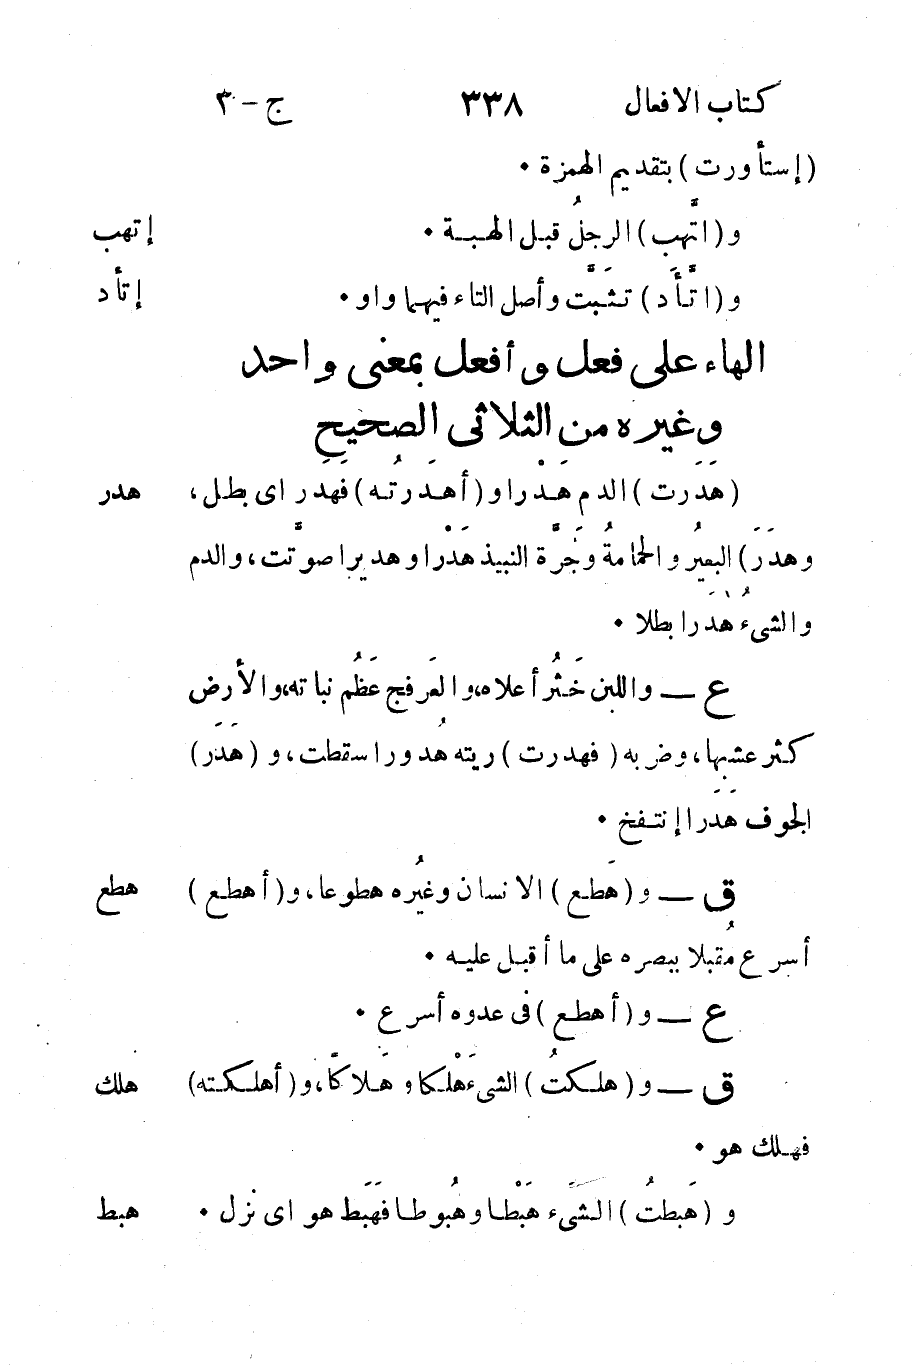 كتاب الافعال ٣٣٨ ج - ٣
(إستأورت) بتقديم الهمزة •
و (اتَّهب) الرجلُ قبل الهبة • إتهب
و (اتَّأَد) تثبَّت وأصل التاء فيهما واو • إتأد
الهاء على فعل وأفعل بمعنى واحد
وغيره من الثلاثى الصحيح
(هَدَرت) الدمُ هَدْرا و (أهدَرتُه) فهَدَر اى بطل، هدر
وهدَرَ) البعيرُ والحمامةُ وجَرَّة النبيذ هَدْرا وهديرا صوَّتت، والدم
والشىءُ هَدَرا بطلا •
ع — واللبن خَثُر أعلاه، والعَرفج عَظُم نباته، والأرض
كثر عشبها، وضربه (فهدرت) ريته هُدورا سقطت، و (هَدَر)
الجوف هَدَرا إنتفخ •
ق — و (هَطع) الانسان وغيرُه هطوعا، و (أهطع) هطع
أسرع مُقبلا ببصره على ما أقبل عليه •
ع — و (أهطع) فى عدوه أسرع •
ق — و (هلكتُ) الشىءَ هْلكا و هَلاكًا، و (أهلكته) هلك
فهلك هو •
و (هَبطتُ) الشَىء هَبْطا وهُبوطا فهَبَط هو اى نزل • هبط